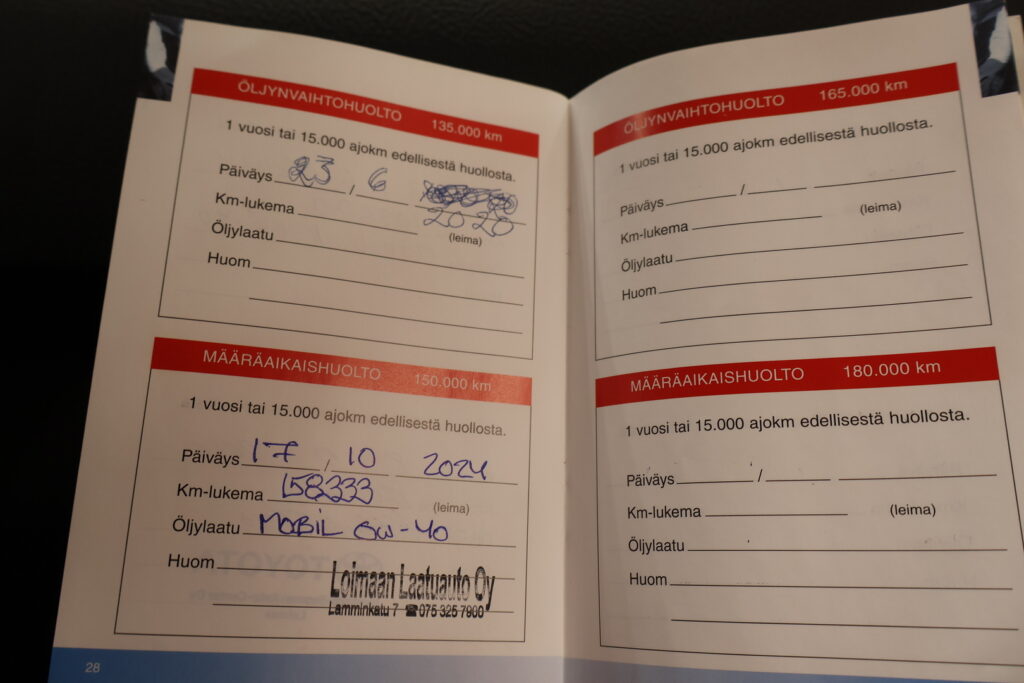 ÖLJYNVAIHTOHUOLTO 135.000 km
1 vuosi tai 15.000 ajokm edellisestä huollosta.
Päiväys 23 / 6
2020
Km-lukema (leima)
Öljylaatu
Huom
MÄÄRÄAIKAISHUOLTO 150.000 km
1 vuosi tai 15.000 ajokm edellisestä huollosta.
Päiväys 17 / 10 2024
Km-lukema 158333 (leima)
Öljylaatu MOBIL 0W-40
Huom
Loimaan Laatuauto Oy
Lamminkatu 7 ☎075 325 7900
28
ÖLJYNVAIHTOHUOLTO 165.000 km
1 vuosi tai 15.000 ajokm edellisestä huollosta.
Päiväys /
Km-lukema (leima)
Öljylaatu
Huom
MÄÄRÄAIKAISHUOLTO 180.000 km
1 vuosi tai 15.000 ajokm edellisestä huollosta.
Päiväys /
Km-lukema (leima)
Öljylaatu
Huom